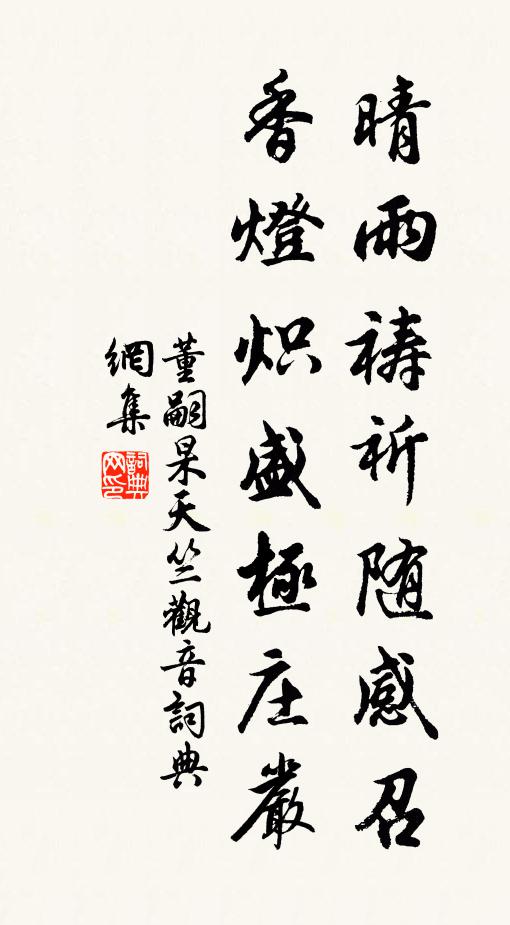 晴雨祷祈随感召
香燈炽盛極庄嚴
董嗣杲天竺觀音詞典
網集
詞典
网印